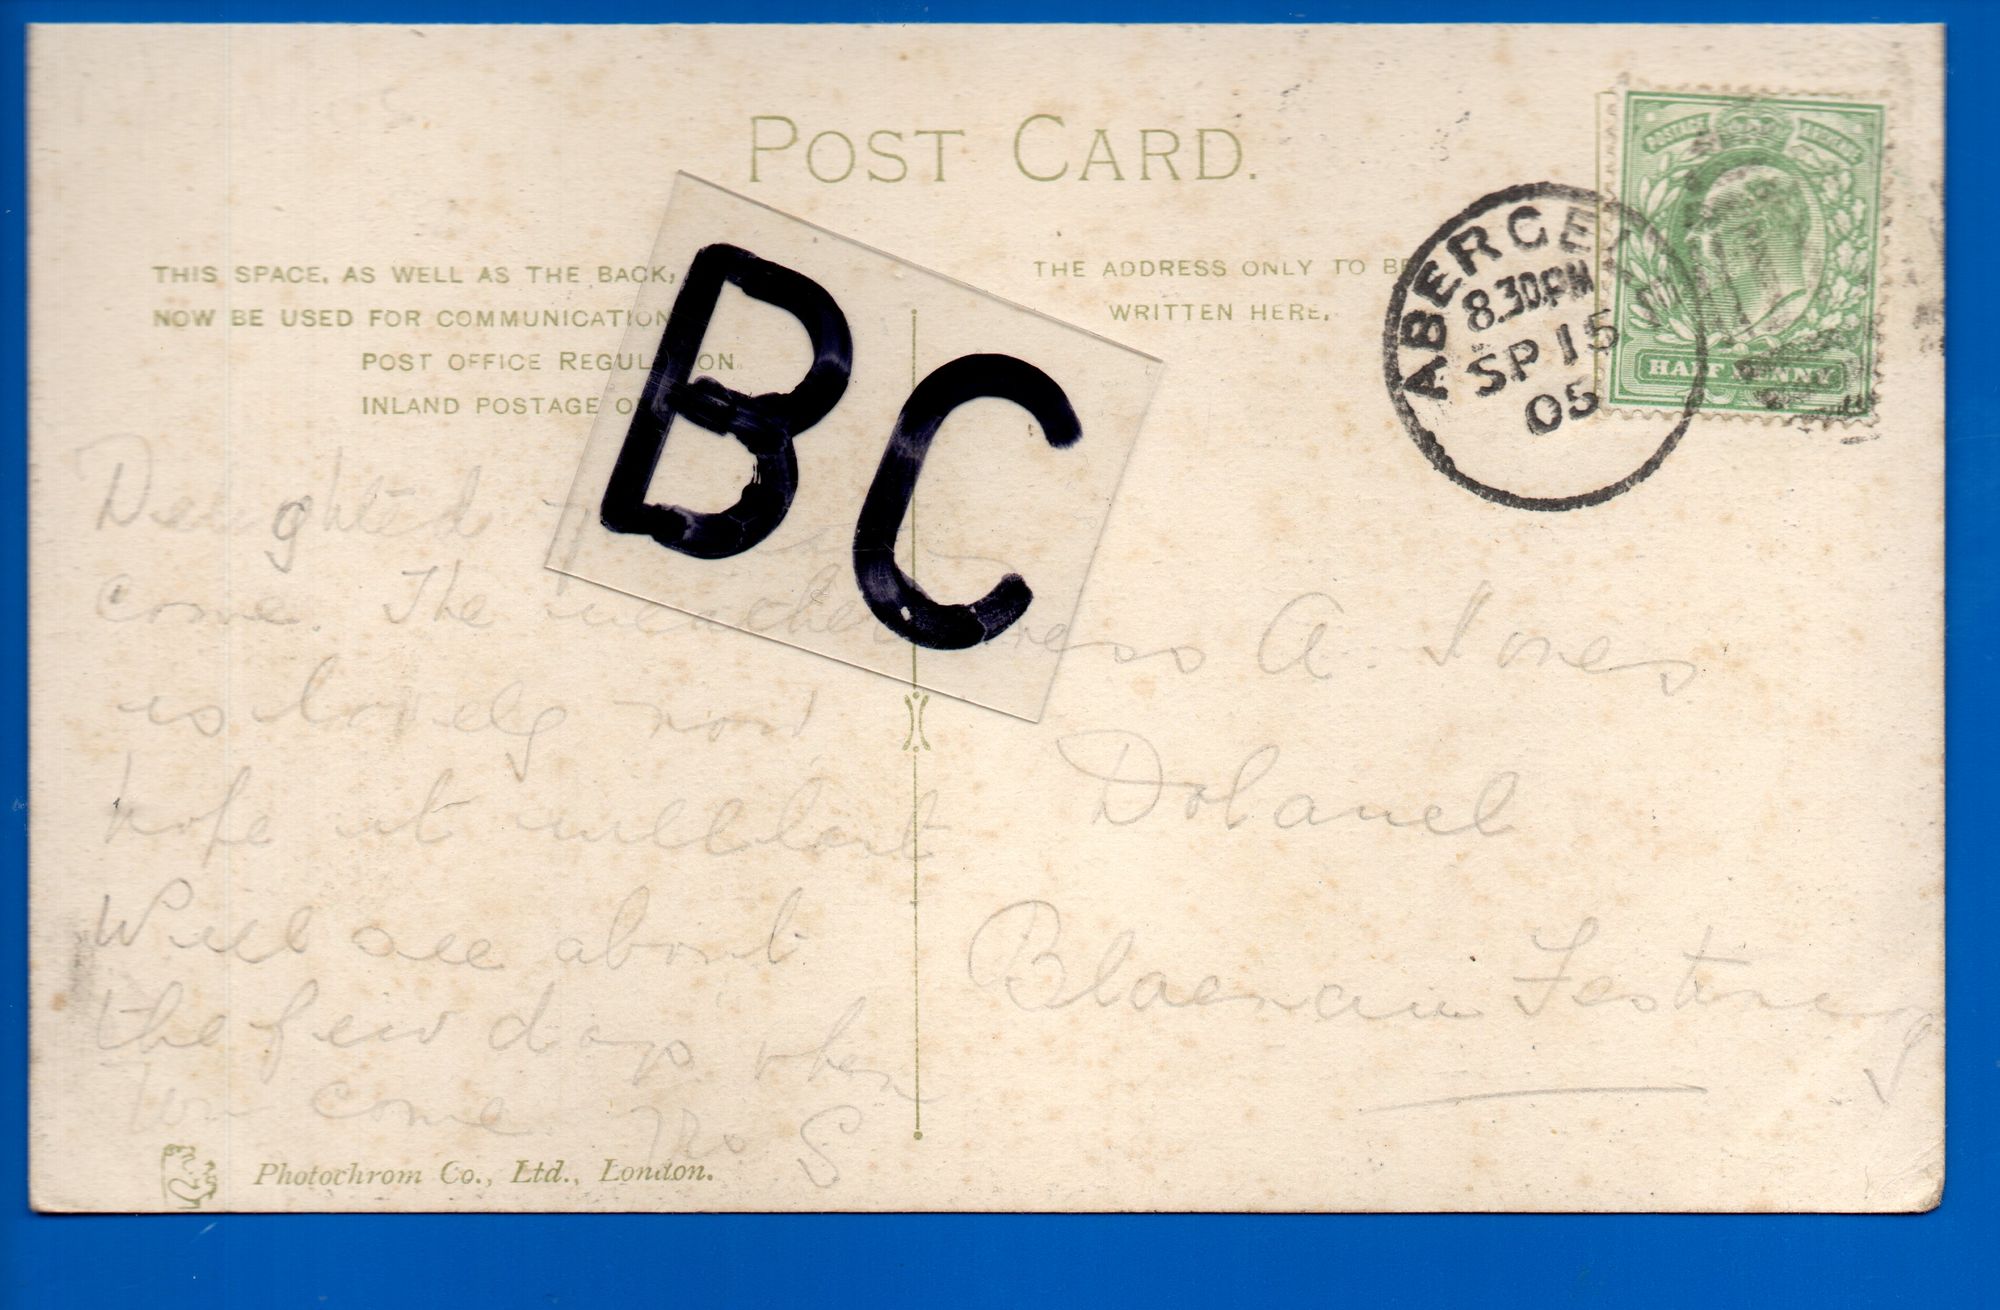 POST CARD.
THIS SPACE, AS WELL AS THE BACK,
NOW BE USED FOR COMMUNICATION
POST OFFICE REGUL ON.
INLAND POSTAGE O
THE ADDRESS ONLY TO BE
WRITTEN HERE.
ABERGE
8.30PM
SP 15
05
POSTAGE REVENUE
HALF PENNY
BC
Delighted
come. The weather
is lovely now
hope it will last
Will see about
the few days when
You come.
S
Miss A. Jones
Dolawel
Blaenau Festiniog
Photochrom Co., Ltd., London.